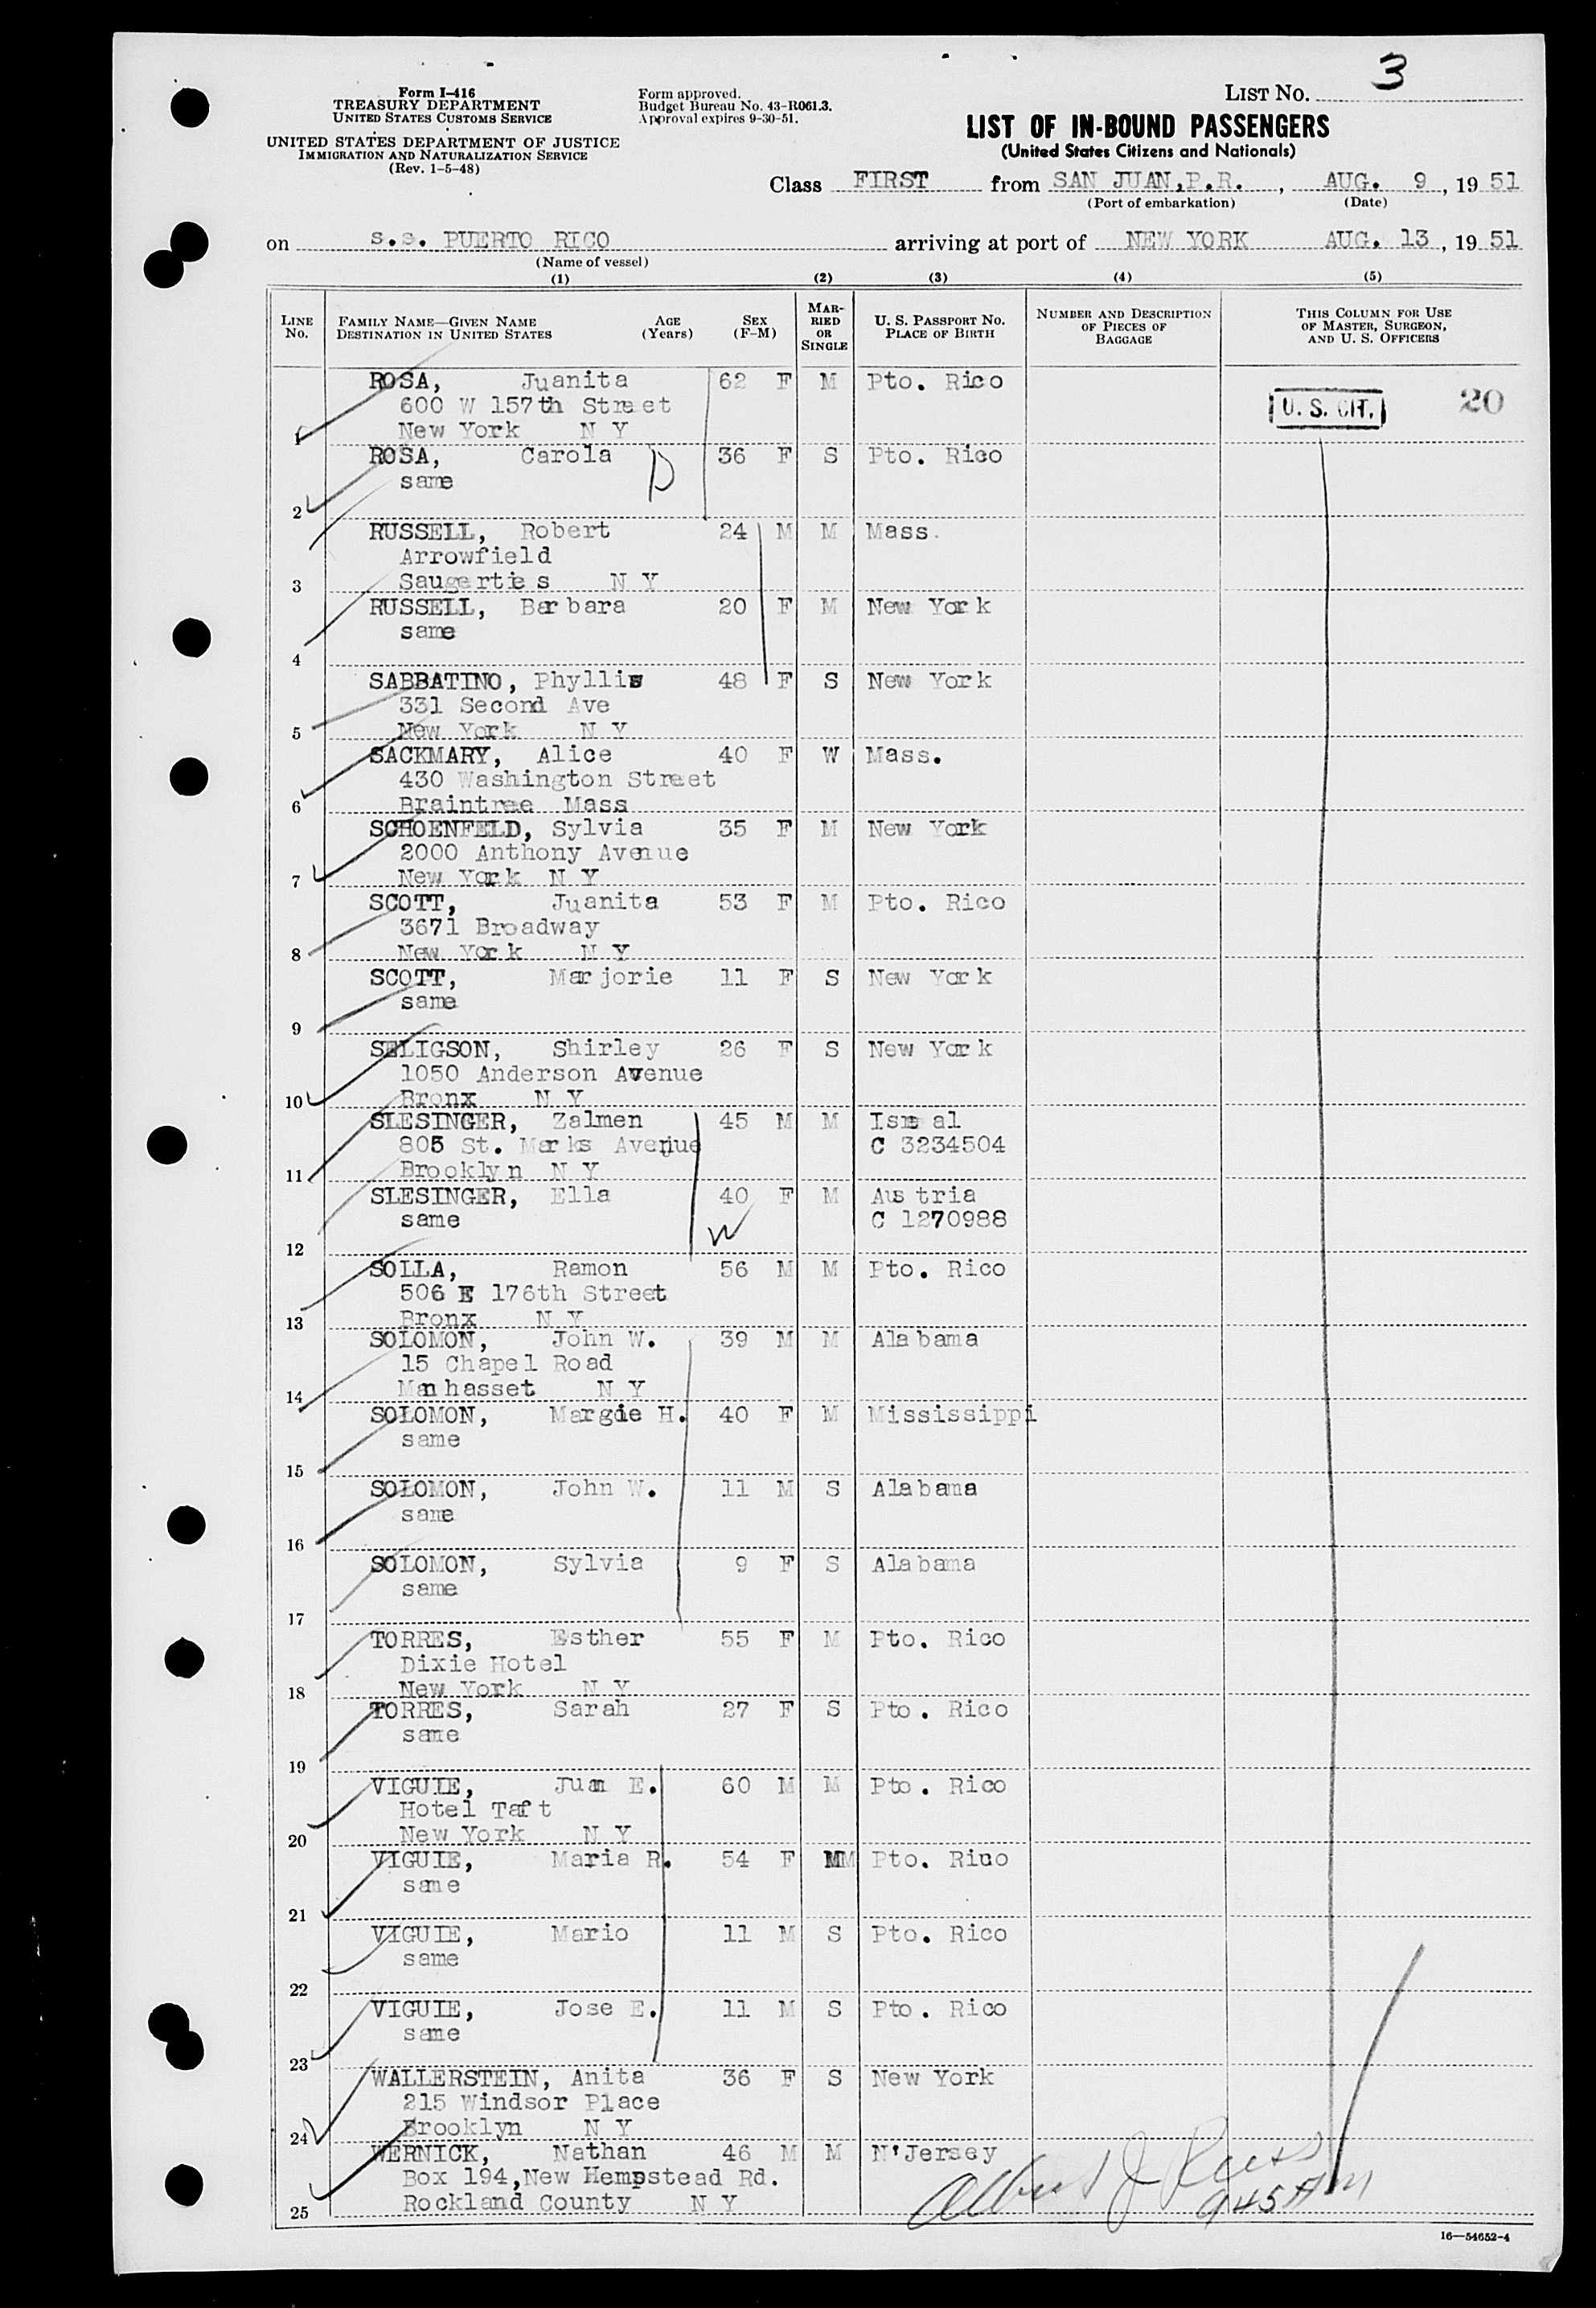 Form I-416
TREASURY DEPARTMENT
UNITED STATES CUSTOMS SERVICE
UNITED STATES DEPARTMENT OF JUSTICE
IMMIGRATION AND NATURALIZATION SERVICE
(Rev. 1-5-48)
Form approved.
Budget Bureau No. 43-R061.3.
Approval expires 9-30-51.
LIST No. 3
LIST OF IN-BOUND PASSENGERS
(United States Citizens and Nationals)
Class FIRST from SAN JUAN,P.R. , AUG. 9 , 19 51
(Port of embarkation) (Date)
on s.s. PUERTO RICO arriving at port of NEW YORK AUG. 13 , 19 51
(Name of vessel)
(1) (2) (3) (4) (5)
LINE No. FAMILY NAME—GIVEN NAME DESTINATION IN UNITED STATES AGE (Years) SEX (F-M) MARRIED OR SINGLE U. S. PASSPORT No. PLACE OF BIRTH NUMBER AND DESCRIPTION OF PIECES OF BAGGAGE THIS COLUMN FOR USE OF MASTER, SURGEON, AND U. S. OFFICERS
ROSA, Juanita 62 F M Pto. Rico
600 W 157th Street U. S. CIT. 20
1 New York N Y
ROSA, Carola 36 F S Pto. Rico
same
2
RUSSELL, Robert 24 M M Mass.
Arrowfield
3 Saugerties N Y
RUSSELL, Barbara 20 F M New York
same
4
SABBATINO, Phyllis 48 F S New York
331 Second Ave
5 New York N Y
SACKMARY, Alice 40 F W Mass.
430 Washington Street
6 Braintree Mass
SCHOENFELD, Sylvia 35 F M New York
2000 Anthony Avenue
7 New York N Y
SCOTT, Juanita 53 F M Pto. Rico
3671 Broadway
8 New York N Y
SCOTT, Marjorie 11 F S New York
same
9
SELIGSON, Shirley 26 F S New York
1050 Anderson Avenue
10 Bronx N Y
SLESINGER, Zalmen 45 M M Isreal
805 St. Marks Avenue C 3234504
11 Brooklyn N Y
SLESINGER, Ella 40 F M Austria
same C 1270988
12
SOLLA, Ramon 56 M M Pto. Rico
506 E 176th Street
13 Bronx N Y
SOLOMON, John W. 39 M M Alabama
15 Chapel Road
14 Manhasset N Y
SOLOMON, Margie H. 40 F M Mississippi
same
15
SOLOMON, John W. 11 M S Alabama
same
16
SOLOMON, Sylvia 9 F S Alabama
same
17
TORRES, Esther 55 F M Pto. Rico
Dixie Hotel
18 New York N Y
TORRES, Sarah 27 F S Pto. Rico
same
19
VIGUIE, Juan E. 60 M M Pto. Rico
Hotel Taft
20 New York N Y
VIGUIE, Maria R. 54 F MM Pto. Riuo
same
21
VIGUIE, Mario 11 M S Pto. Rico
same
22
VIGUIE, Jose E. 11 M S Pto. Rico
same
23
WALLERSTEIN, Anita 36 F S New York
215 Windsor Place
24 Brooklyn N Y
WERNICK, Nathan 46 M M N'Jersey
Box 194,New Hempstead Rd.
25 Rockland County N Y
Albert J
945 AM
16—54652-4